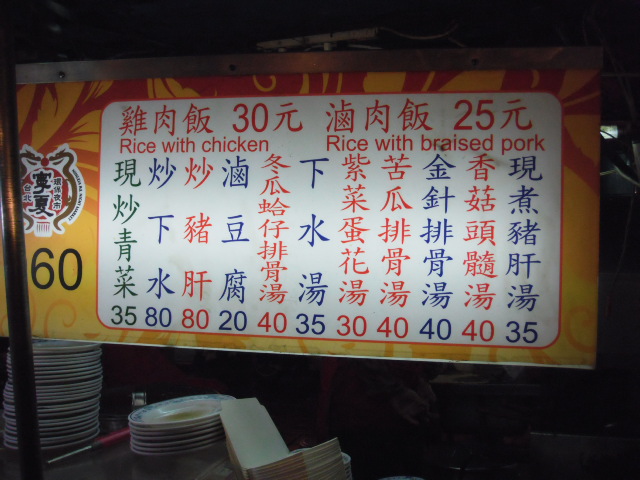 雞肉飯 30元 滷肉飯 25元
Rice with chicken Rice with braised pork
現炒青菜 35
炒下水 80
炒豬肝 80
滷豆腐 20
冬瓜蛤仔排骨湯 40
下水湯 35
紫菜蛋花湯 30
苦瓜排骨湯 40
金針排骨湯 40
香菇頭髓湯 40
現煮豬肝湯 35
寧夏
台北
環保夜市
60